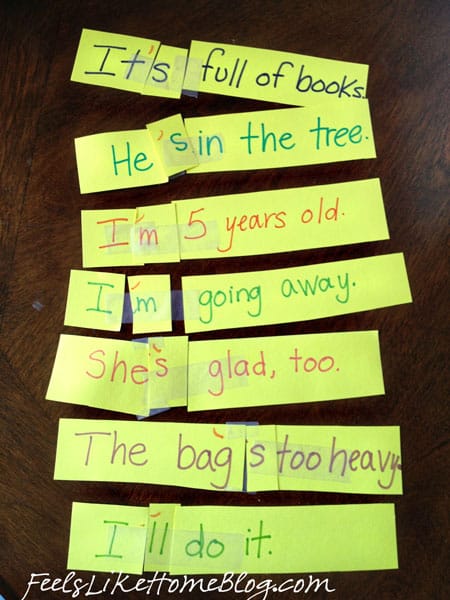 It's full of books.
He's in the tree.
I'm 5 years old.
I'm going away.
She's glad, too.
The bag's too heavy.
I'll do it.
FeelsLikeHomeBlog.com